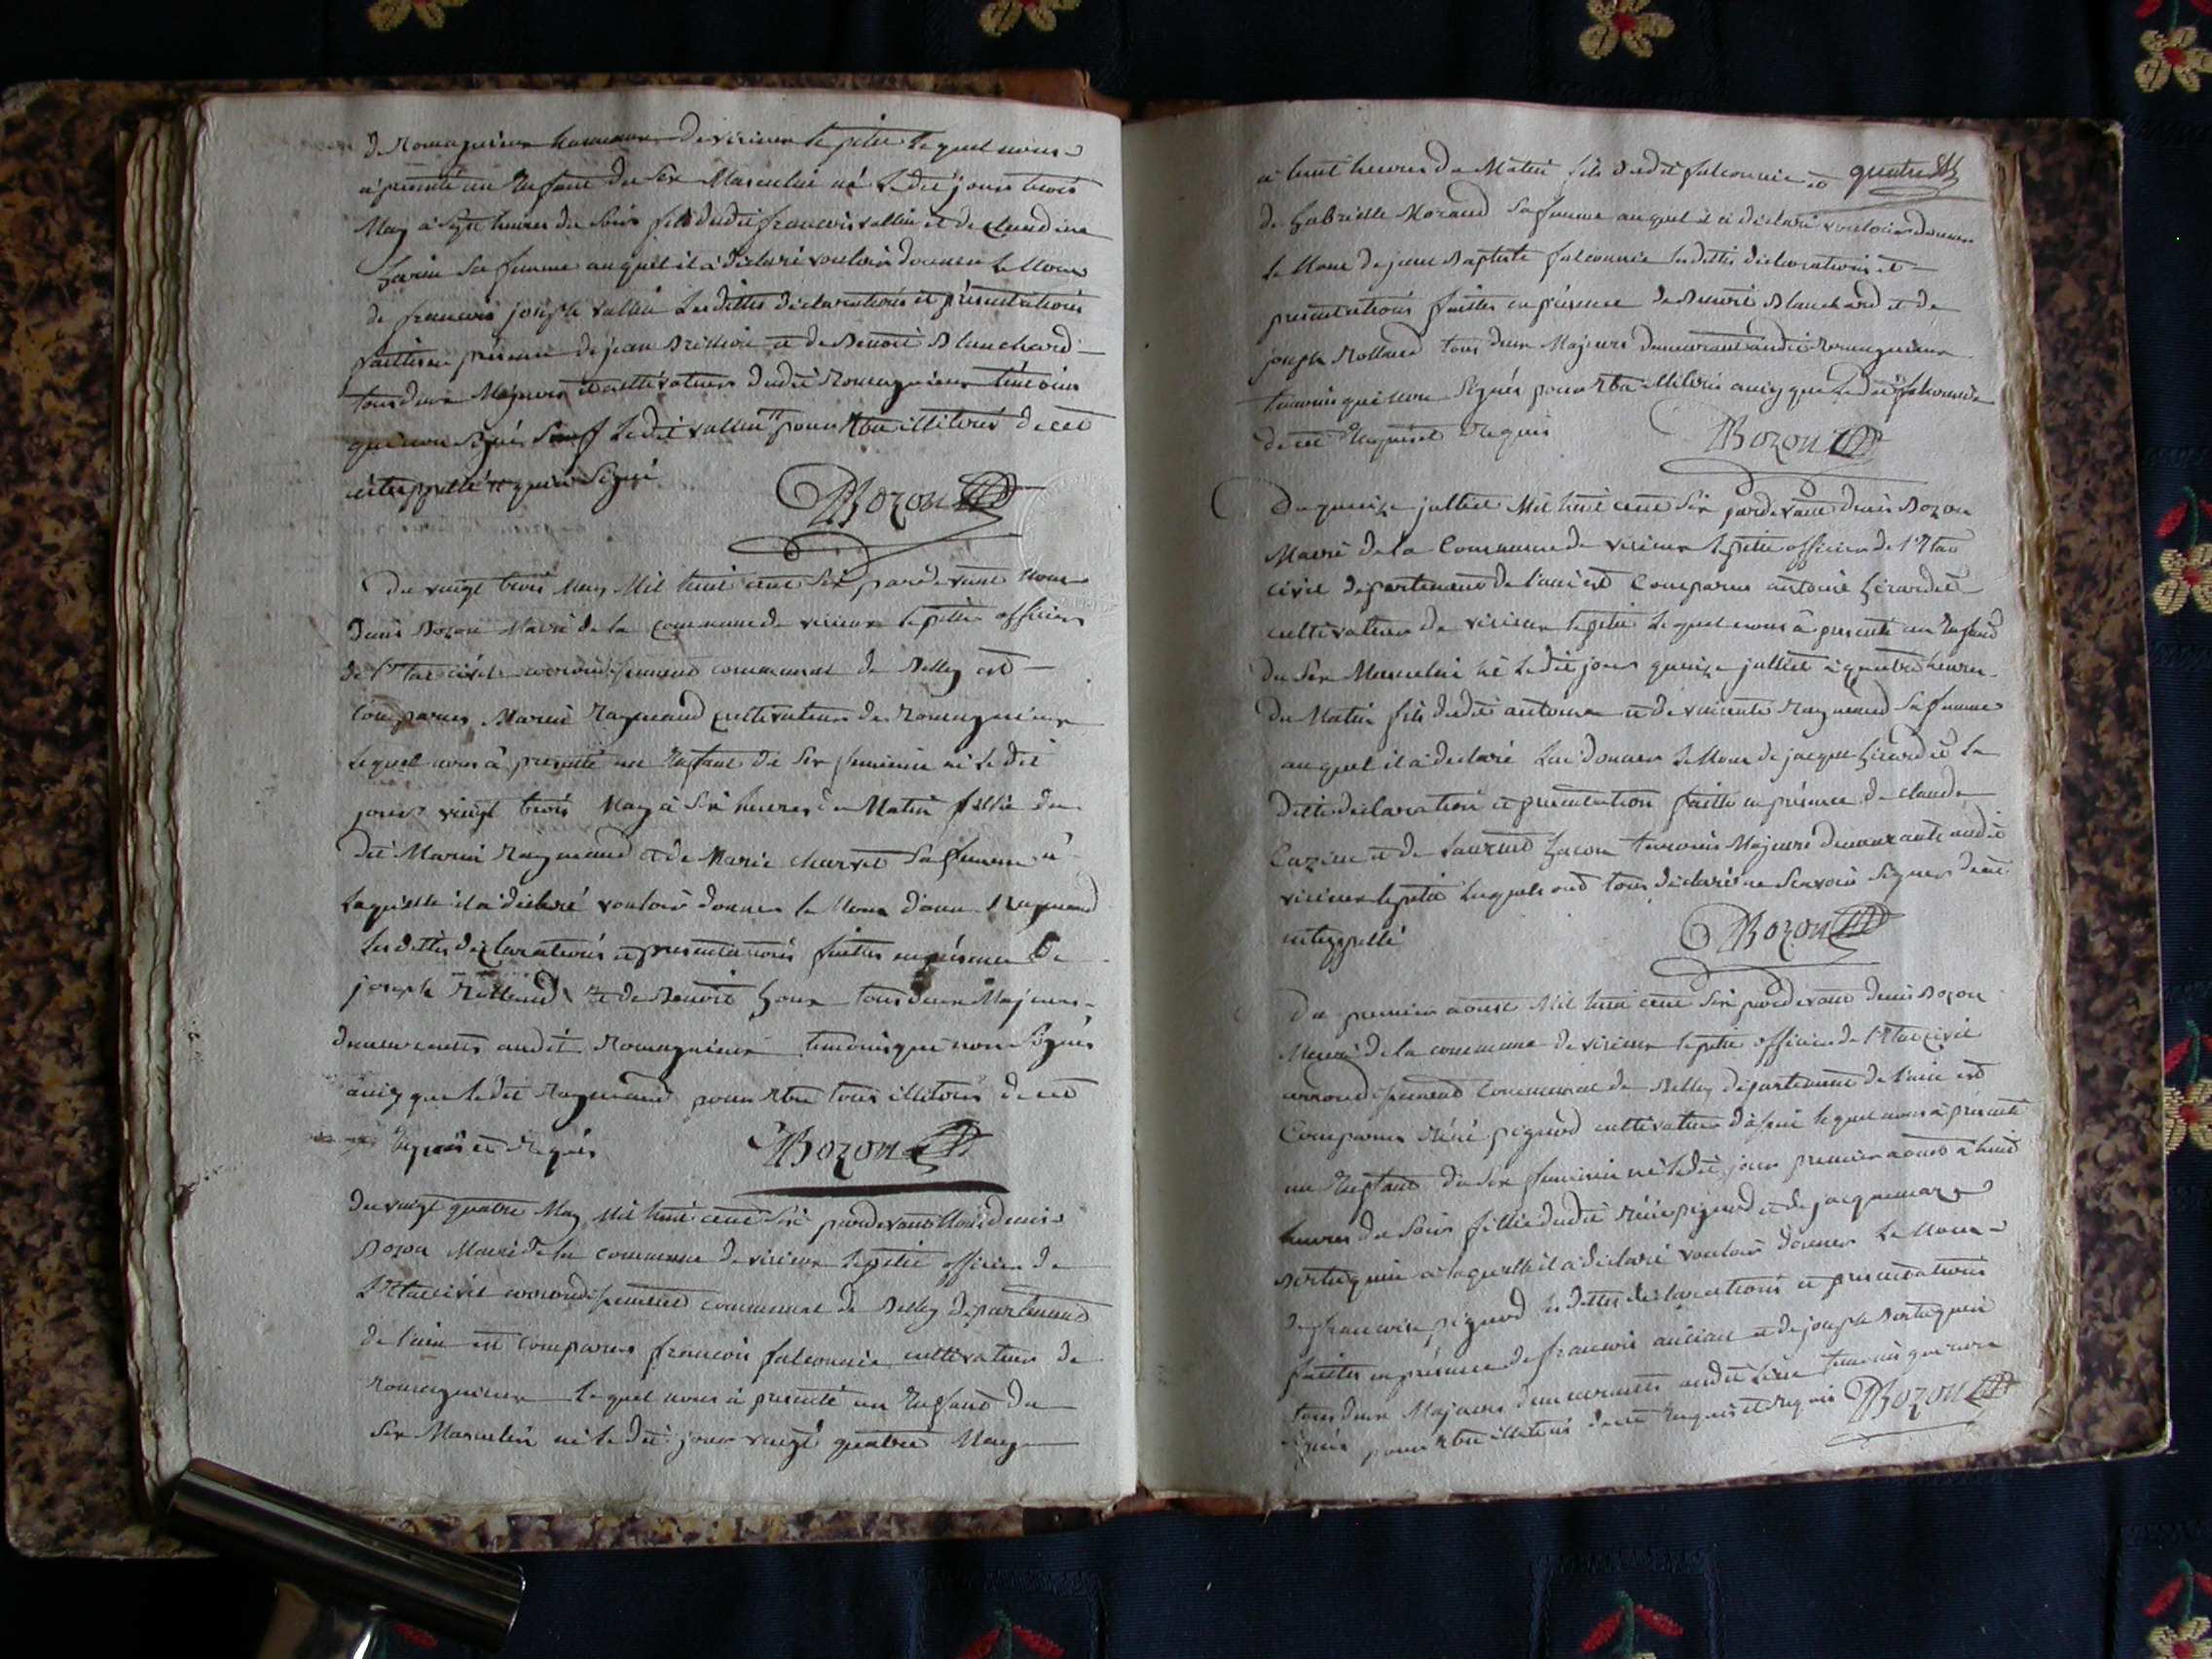 de Romagnieux hameaux de virieux le petit lequel nous
a presenté un Enfant du Sexe Masculin né Le dit jour trois
May à Sept heures du Soir fils dudit francois vallin et de Claudine
Sa femme auquel il à déclaré vouloir donner Le Nom
de francois joseph vallin Les dittes déclarations et présentations
faittes en présence de jean et de Benoit Blanchard
tous deux Majeurs et cultivateurs dudit Romagnieux témoins
qui non Signé Sauf Le dit vallin pour Etre illiterés de ce
interppellé et requis Signé
Bozon
Du vingt trois May Mil huit cent Six pardevant Nous
Denis Bozon Maire de la Commune de virieux le petit officier
de l'Etat civil arrondissement communal de Belley est
Comparus Marin Raymand cultivateur de Romagnieux
Lequel nous à presenté un Enfant du Sex feminin né Le dit
jour vingt trois May à Six heures du Matin fillie du
dit Marin Raymand et de Marie charvet Sa femme a
Laquelle il a déclaré vouloir donner le Nom d'anne Raymand
Les dittes déclarations et presentations faittes en présence de
joseph Rolland et de Benoit tous deux Majeurs
demeurants audit Romagnieux temoins qui non Signés
ainsy que le dit Raymand pour Etre tous illiterés de ce
Enquis et Requis Bozon
Du vingt quatre May Mil huit cent Six pardevant Nous denis
Bozon Maire de la Commune de virieux le petit officier de
L'Etat civil arrondissement communal de Belley département
de l'ain est Comparus francois falconnie cultivateur de
Romagnieux lequel nous à presenté un Enfant du
Sex Masculin né le dit jour vingt quatre May
quatre
à huit heures du Matin fils dudit falconnie et
de Gabrielle Morand Sa femme auquel il à déclaré vouloir donner
Le Nom de jean Baptiste falconnie Les dittes déclarations et
presentations faittes en présence de Benoit Blanchard et de
joseph Rolland tous deux Majeurs demeurant audit Romagnieux
temoins qui non Signés pour Etre illiterés ainsy que Le dit falconnie
de ce Enquis et Requis Bozon
Du quinze julliet Mil huit cent Six pardevant Denis Bozon
Maire de la Commune de virieux le petit officier de l'Etat
civil département de l'ain est Comparus antoine Girardet
cultivateur de virieux le petit Lequel nous à presenté un Enfant
du Sex Masculin né Le dit jour quinze julliet à quatre heures
du Matin fils dudit antoine et de Raymand Sa femme
auquel il à déclaré Lui donner Le Nom de jacque Girardet La
ditte déclaration et presentation faitte en présence de claude
et de temoins Majeurs demeurants audit
virieux le petit Lesquels ont tous déclaré ne Scavoir Signer de ce
interppellé
Bozon
Du premier aoust Mil huit cent Six pardevant denis Bozon
Maire de la commune de virieux le petit officier de l'Etat civil
arrondissement Communal de Belley département de l'ain est
Comparus Réné pignod cultivateur lequel nous à présenté
un Enfant du Sex feminin né le dit jour premier aoust à huit
heures du Soir fillie dudit Réné pignod et de jacquemaz
à laquelle il à déclaré vouloir donner Le Nom
de francoise pignod les dittes déclarations et presentations
faittes en présence de francois ancian et de joseph
tous deux Majeurs demeurants audit lieu temoins qui non
Signés pour Etre illiterés de ce Enquis et Requis Bozon